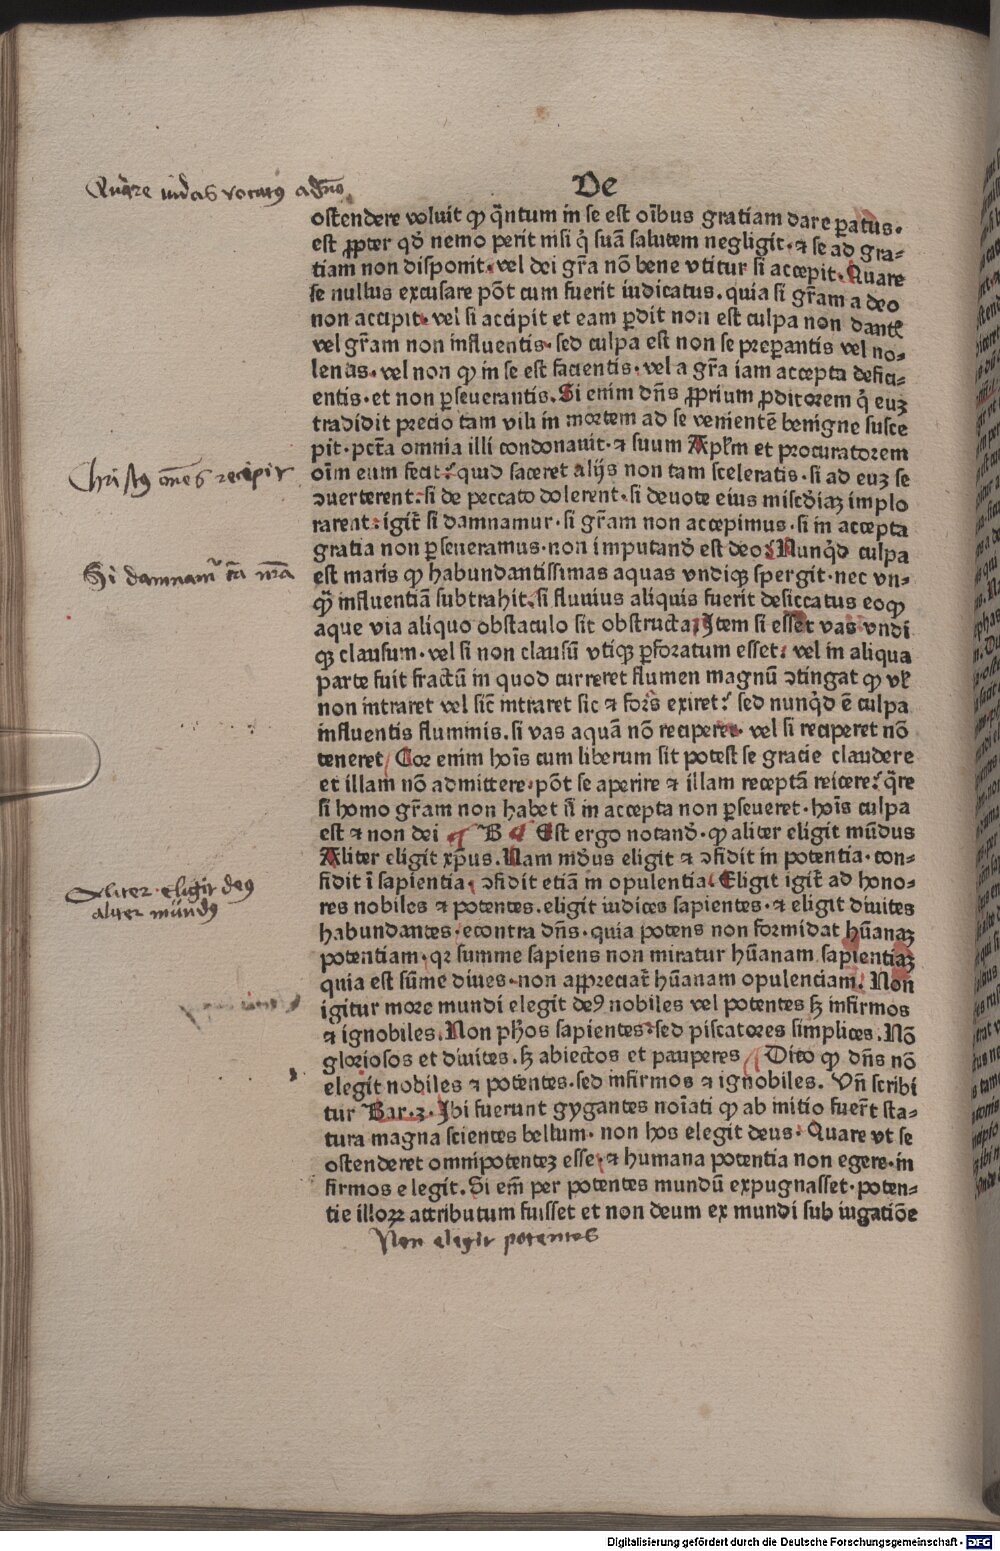 De
Quare iudas vocatꝰ a dn̄o
ostendere voluit ꝙ q̄ntum in se est oībus gratiam dare ꝑatus.
est ꝓpter qd̕ nemo perit nisi q̇ suā salutem negligit· ⁊ se ad gra⸗
tiam non disponit. vel dei gr̄a nō bene vtitur si accepit. Quare
se nullus excusare pōt cum fuerit iudicatus. quia si gr̄am a deo
non accipit. vel si accipit et eam ꝑdit non est culpa non dantꝭ
vel gr̄am non influentis. sed culpa est non se preꝑantis vel no⸗
lentis. vel non ꝙ in se est facientis. vel a gr̄a iam accepta defici⸗
entis. et non ꝑseuerantis. Si enim dn̄s ꝓprium ꝓditorem q̇ euꝫ
tradidit precio tam vili in mortem ad se venientē benigne susce
pit. pctā omnia illi condonauit· ⁊ suum Apl̄m et procuratorem
oīm eum fecit? quid faceret alijs non tam sceleratis. si ad euꝫ se
ↄuerterent: si de peccato dolerent. si deuote eius misc̄diaꝫ implo
Christꝰ om̄es recipit
rarent: igit̄ si damnamur. si gr̄am non accepimus. si in accepta
gratia non ꝑseueramus. non imputand̕ est deo? Nunqͥd culpa
Si damnam̄
est maris ꝙ habundantissimas aquas vndiqꝫ spergit. nec vn⸗
qꝫ̄ influentiā subtrahit. si fluuius aliquis fuerit desiccatus eoꝙ
aque via aliquo obstaculo sit obstructa, Item si esset vas vndi
qꝫ clausum. vel si non clausū vtiqꝫ ꝑforatum esset: vel in aliqua
parte fuit fractū in quod curreret flumen magnū ↄtingat ꝙ vl̕
non intraret vel sic̄ intraret sic ⁊ foris exiret? sed nunqͥd ē culpa
influentis fluminis. si vas aquā nō reciperet. vel si reciperet nō
teneret Cor enim hoīs cum liberum sit potest se gracie claudere
et illam nō admittere. pōt se aperire ⁊ illam receptā reicere? q̄re
si homo gr̄am non habet n̄l in accepta non ꝑseueret. hoīs culpa
est ⁊ non dei ¶ B ¶ Est ergo notand̕. ꝙ aliter eligit mūdus
Aliter eligit xp̄us. Nam mūdus eligit ⁊ ↄfidit in potentia. con⸗
fidit ī sapientia, ↄfidit etiā in opulentia. Eligit igit̄ ad hono⸗
Aliter eligit deꝰ
aliter mūndꝰ
res nobiles ⁊ potentes. eligit iudices sapientes. ⁊ eligit diuites
habundantes. econtra dn̄s. quia potens non formidat hūanaꝫ
potentiam. qꝛ summe sapiens non miratur hūanam sapientiaꝫ
quia est sūme diues. non appreciat̄ hūanam opulenciam. Non
igitur more mundi elegit deꝰ nobiles vel potentes sꝫ infirmos
⁊ ignobiles. Non ph̄os sapientes: sed piscatores simplices. Nō
gloriosos et diuites. sꝫ abiectos et pauperes Dico ꝙ dn̄s nō
elegit nobiles ⁊ potentes. sed infirmos ⁊ ignobiles. Vn̄ scribi
tur Bar.3. Ibi fuerunt gygantes noīati ꝙ ab initio fuer̄t sta⸗
tura magna scientes bellum. non hos elegit deus. Quare vt se
ostenderet omnipotenteꝫ esse. ⁊ humana potentia non egere. in
firmos elegit. Si em̄ per potentes mundū expugnasset. poten⸗
tie illoꝝ attributum fuisset et non deum ex mundi sub iugatiōe
Non elegit potentes
Digitalisierung gefördert durch die Deutsche Forschungsgemeinschaft - DFG